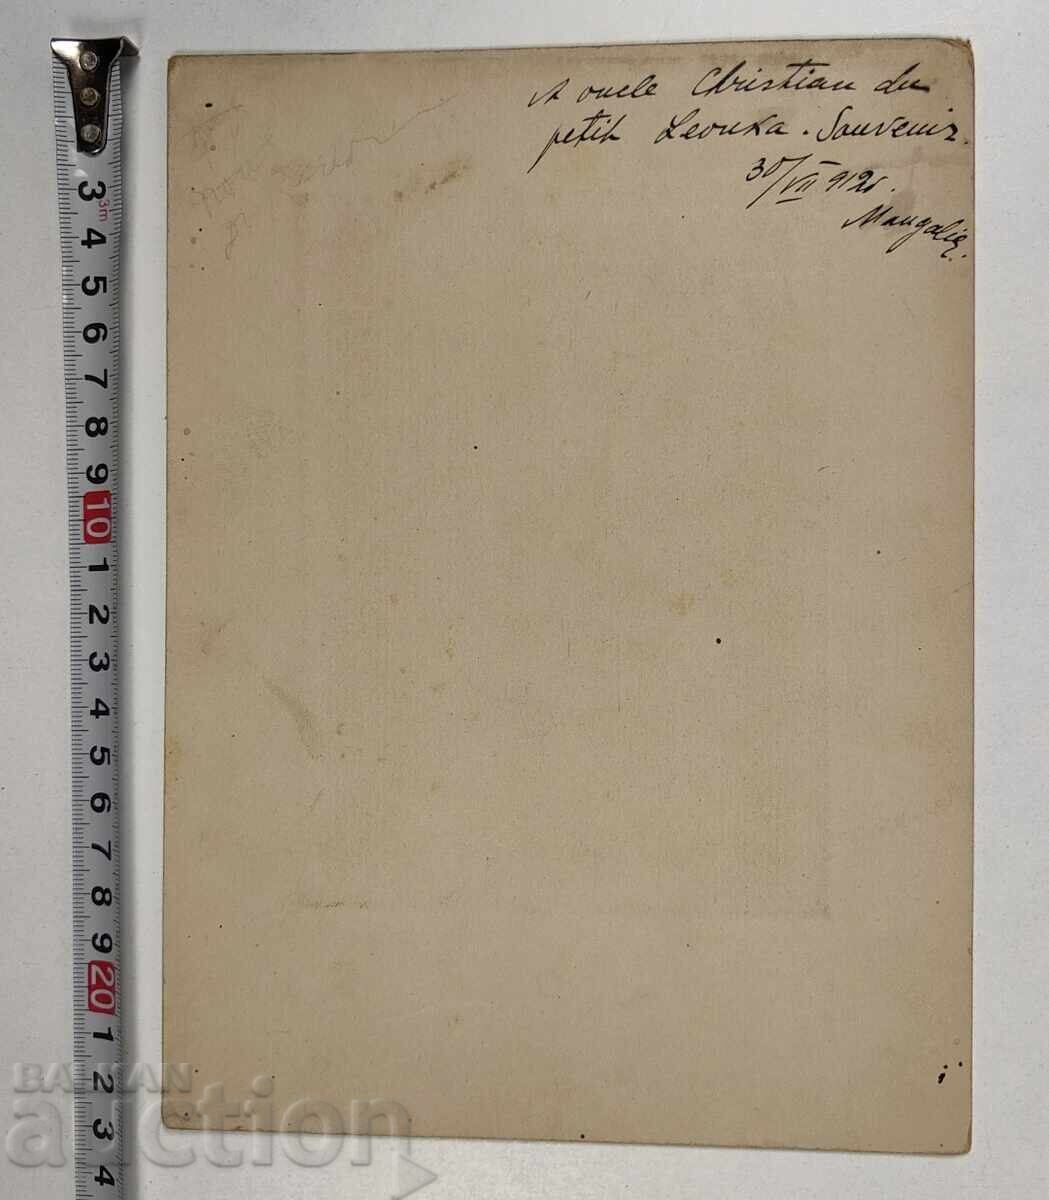 A oncle Christian du
petit Leonka. Souvenir.
30/VII 912.
Mangalia.
3m
3
4
5
6
7
8
9
10
1
2
3
4
5
6
7
8
9
20
1
2
3
4
BALKAN
auction